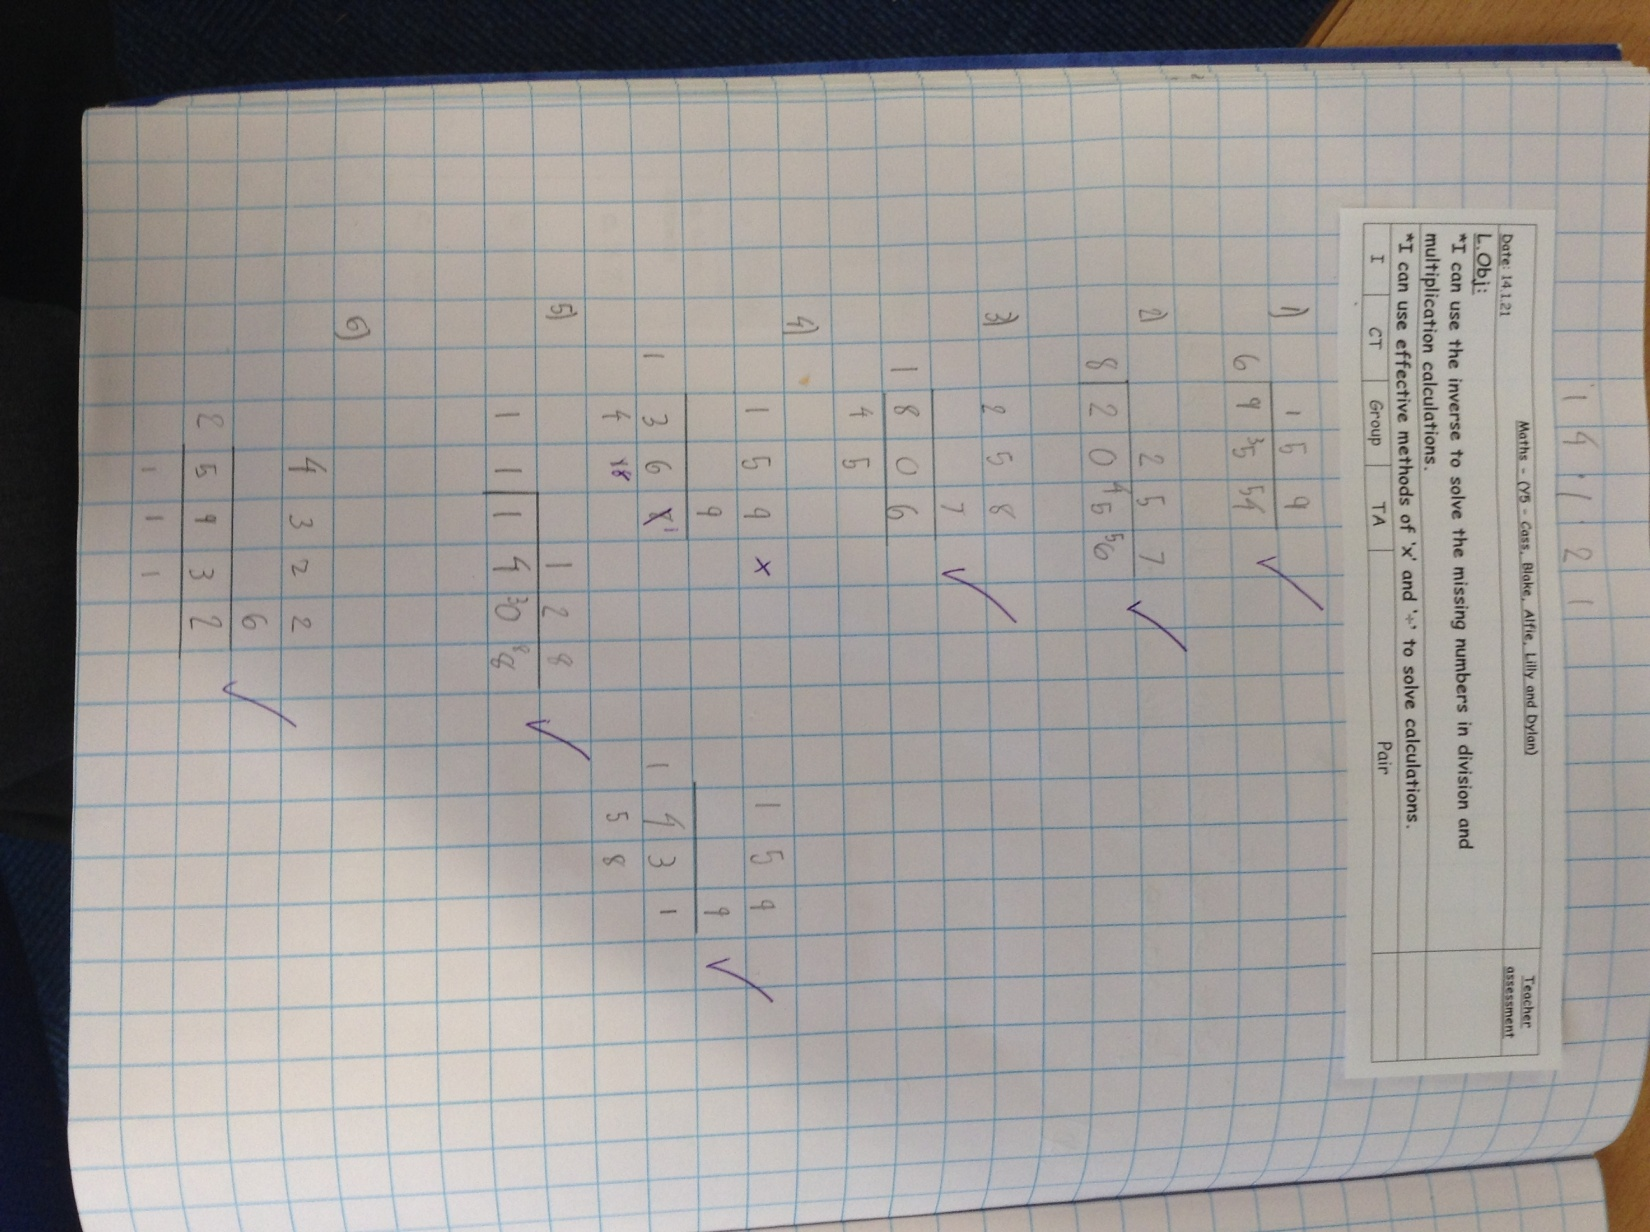 14.1.21
Maths - (Y5 - Cass, Blake, Alfie, Lilly and Dylan)
Teacher assessment
Date: 14.1.21
L.Obj:
*I can use the inverse to solve the missing numbers in division and
multiplication calculations.
*I can use effective methods of 'x' and '÷' to solve calculations.
I CT Group TA Pair
1) 1 5 9
6 9 35 54
2) 2 5 7
8 2 0 45 56
3) 2 5 8
7
1 8 0 6
4 5
4) 1 5 9 x
9
1 3 6
4
1 5 9
9
1 4 3 1
5 8
5) 1 2 8
1 1 1 4 30 88
6) 4 3 2 2
6
2 5 9 3 2
1 1 1